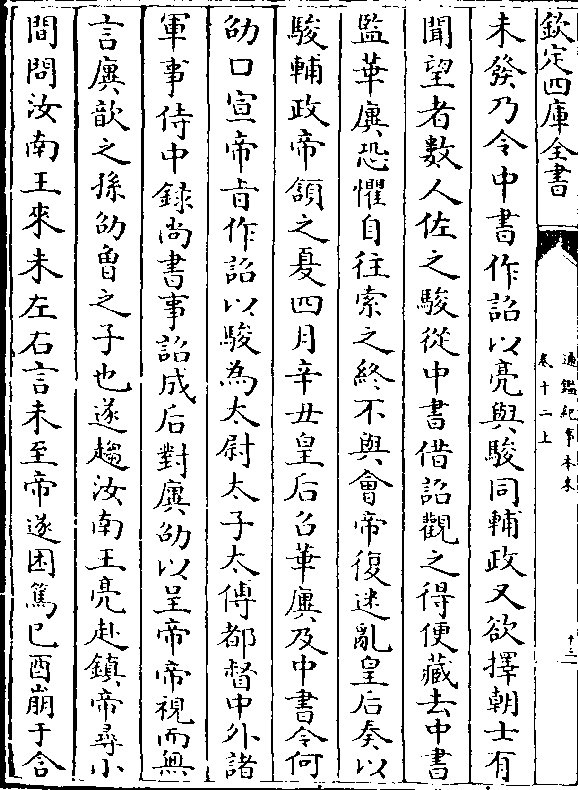 欽定四庫全書
通鑑紀事本末
卷十二上
未發乃令中書作詔以亮與駿同輔政又欲擇朝士有
聞望者數人佐之駿從中書借詔觀之得便藏去中書
監華廙恐懼自往索之終不與會帝復迷亂皇后奏以
駿輔政帝頷之夏四月辛丑皇后召華廙及中書令何
劭口宣帝旨作詔以駿為太尉太子太傅都督中外諸
軍事侍中錄尚書事詔成后對廙劭以呈帝帝視而無
言廙歆之孫劭魯之子也遂趨汝南王亮赴鎮帝尋小
間問汝南王來未左右言未至帝遂困篤巳酉崩于含